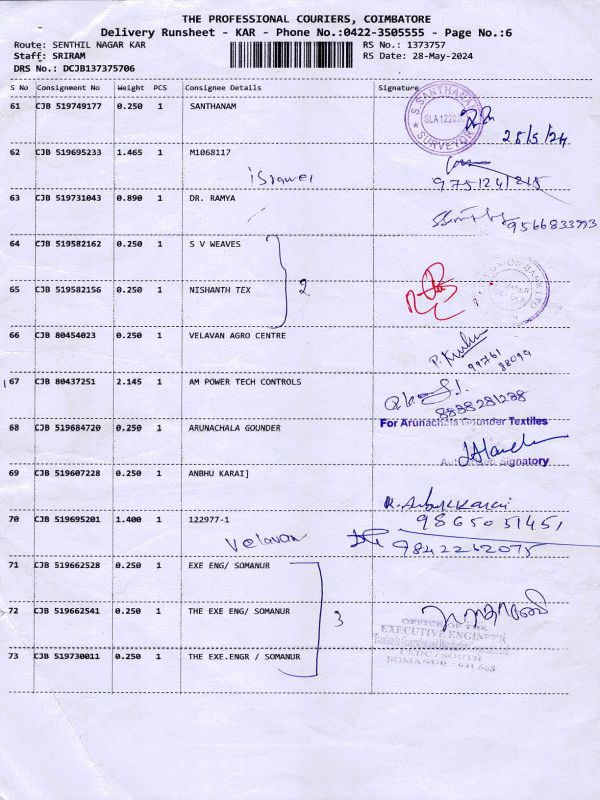 THE PROFESSIONAL COURIERS, COIMBATORE
Delivery Runsheet - KAR - Phone No.:0422-3505555 - Page No.:6
Route: SENTHIL NAGAR KAR
RS No.: 1373757
Staff: SRIRAM
RS Date: 28-May-2024
DRS No.: DCJB137375706
S No Consignment No Weight PCS Consignee Details Signature
61 CJB 519749177 0.250 1 SANTHANAM
S.SANTHANAM
SURVEYOR
28/5/24
62 CJB 519695233 1.465 1 M1068117
9751241815
63 CJB 519731043 0.890 1 DR. RAMYA
9566833993
64 CJB 519582162 0.250 1 S V WEAVES
2
65 CJB 519582156 0.250 1 NISHANTH TEX
66 CJB 80454023 0.250 1 VELAVAN AGRO CENTRE
99761
88099
67 CJB 80437251 2.145 1 AM POWER TECH CONTROLS
8838281238
68 CJB 519684720 0.250 1 ARUNACHALA GOUNDER
For Arunachala Gounder Textiles
Authorised Signatory
69 CJB 519607228 0.250 1 ANBHU KARAI]
9865051451
70 CJB 519695201 1.400 1 122977-1
Velavan
9842262075
71 CJB 519662528 0.250 1 EXE ENG/ SOMANUR
72 CJB 519662541 0.250 1 THE EXE ENG/ SOMANUR
3
OFFICE OF THE
EXECUTIVE ENGINEER
73 CJB 519730011 0.250 1 THE EXE.ENGR / SOMANUR
SOMANUR - 641 668